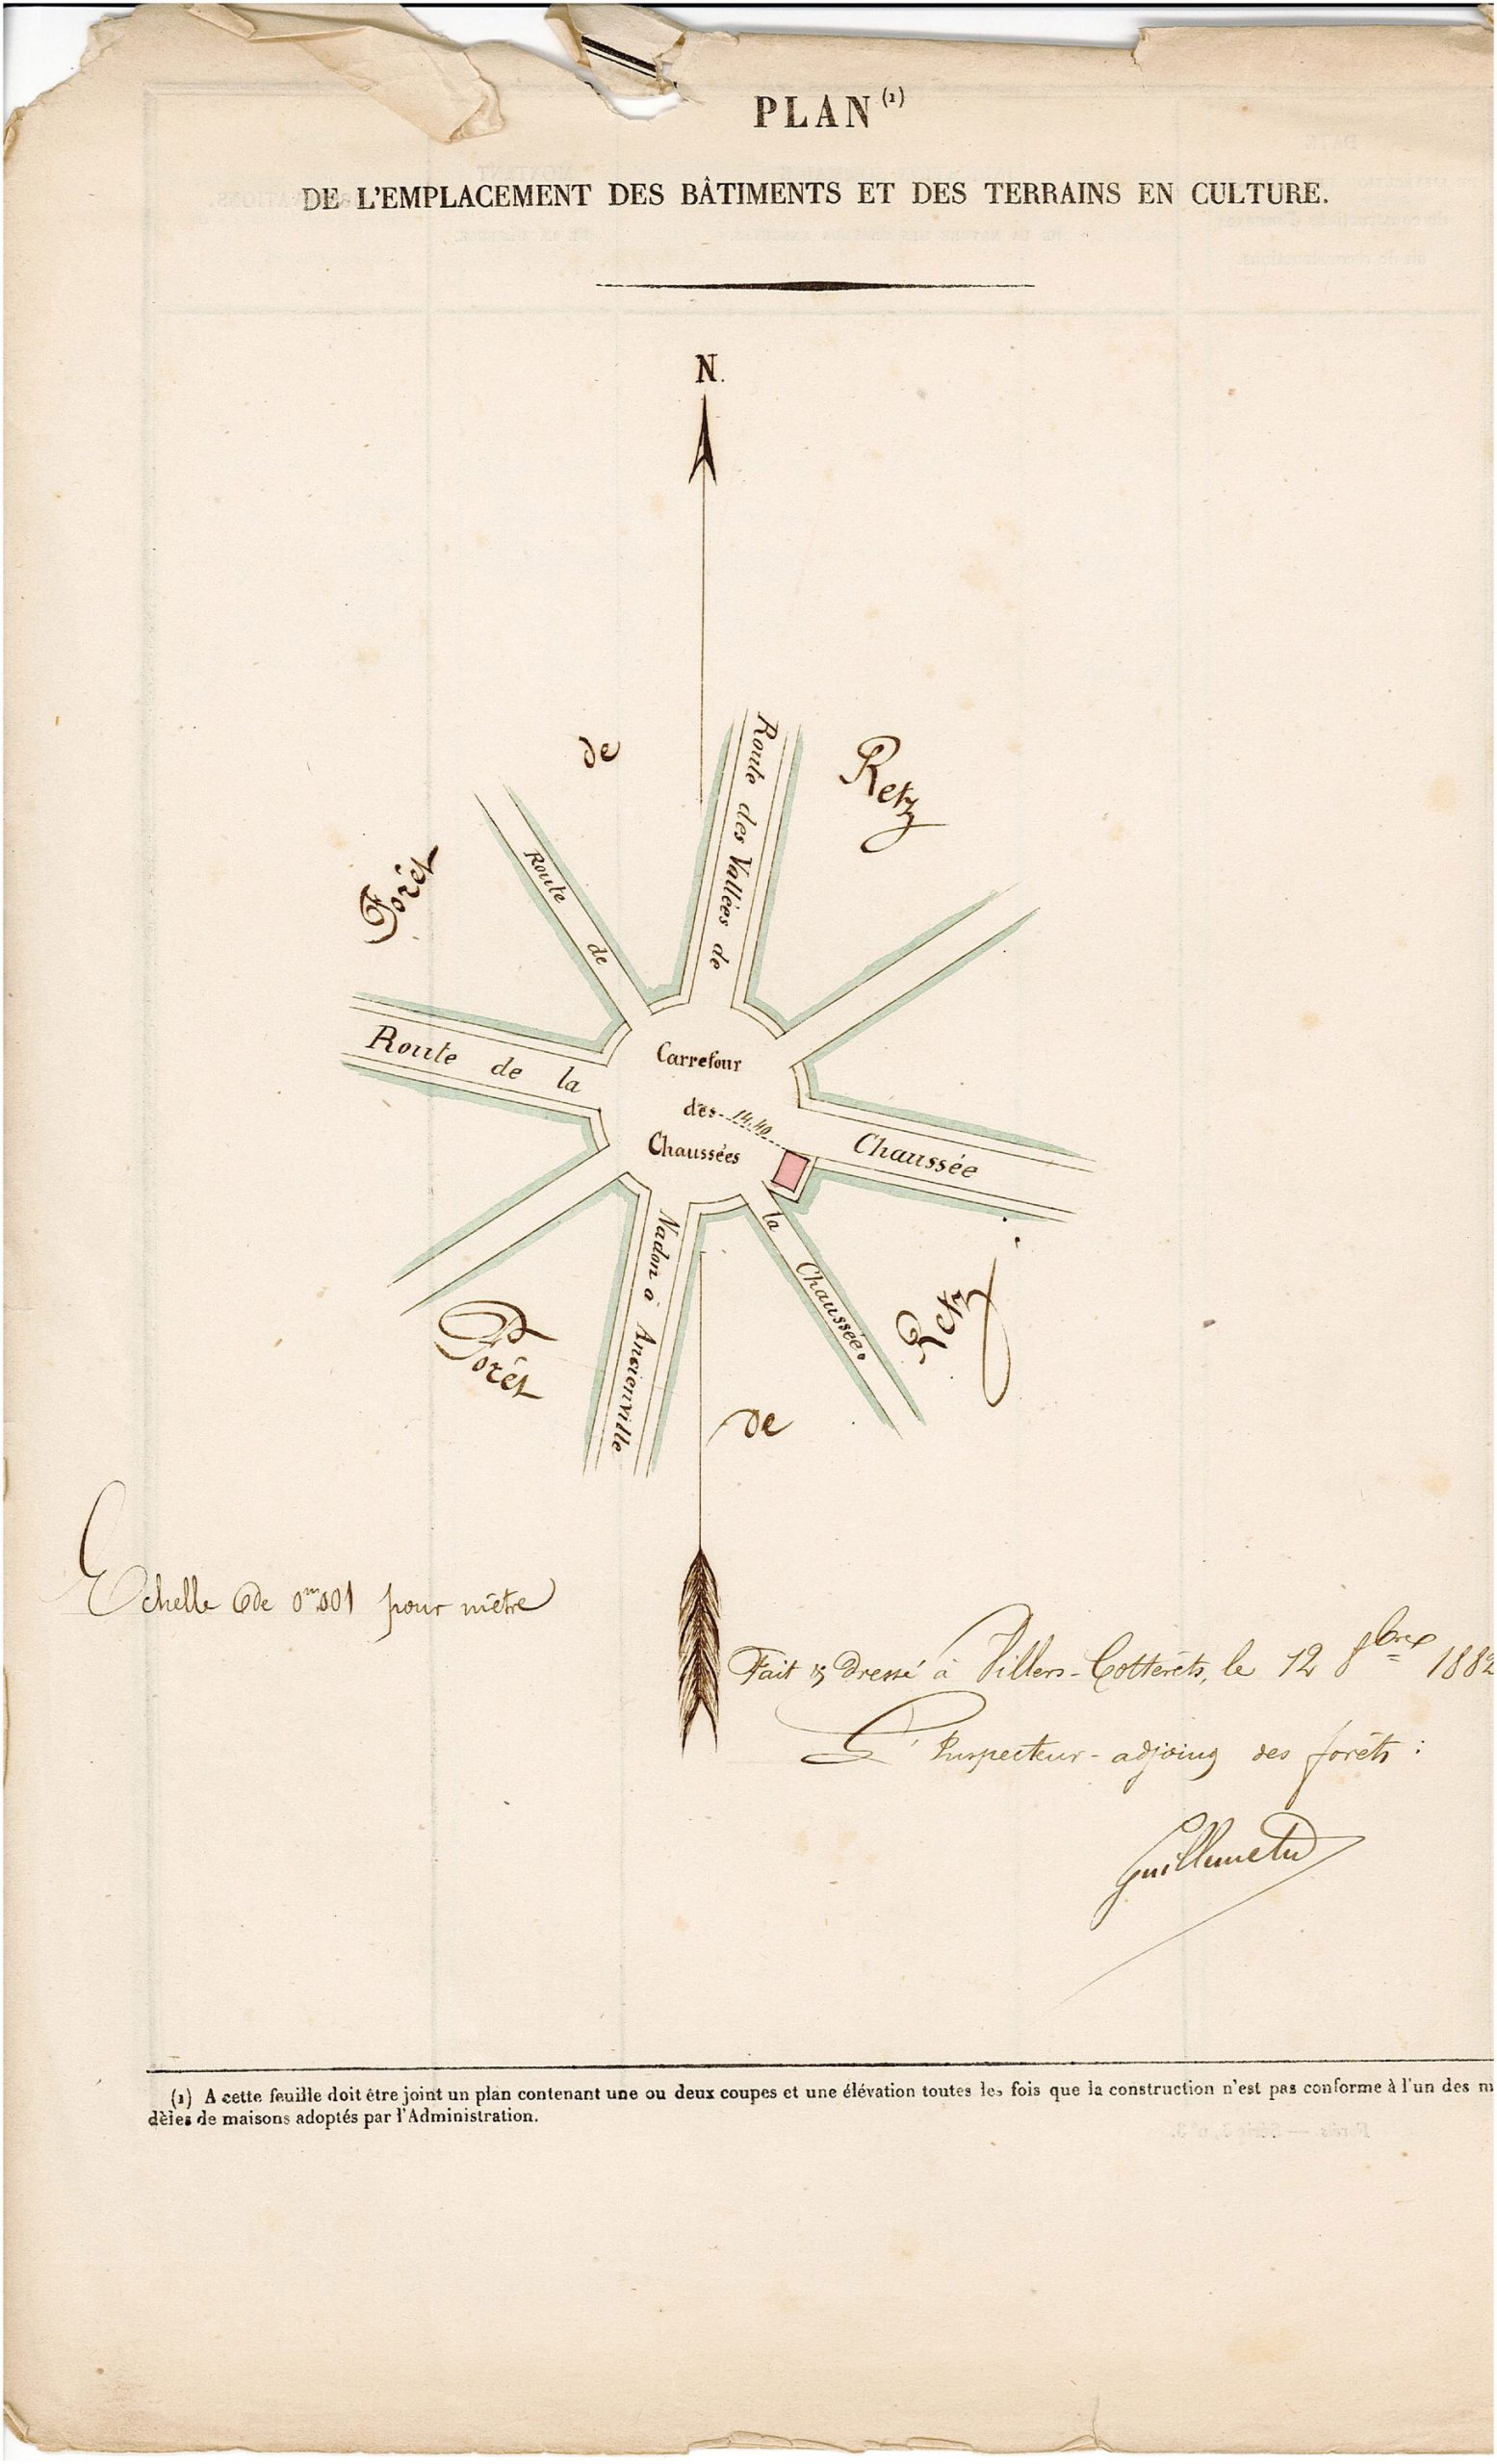 PLAN (1)
DE L'EMPLACEMENT DES BÂTIMENTS ET DES TERRAINS EN CULTURE.
N.
Forêt de Retz
Route des Vallées de
Route de
Route de la
Carrefour
des
14.40
Chaussées
Chaussée
la Chaussée
Nadon à Ancienville
Forêt de Retz
Echelle de 0m.001 pour mètre
Fait & Dressé à Villers-Cotterêts, le 12 8bre 1882
L'Inspecteur-adjoint des forêts :
(1) A cette feuille doit être joint un plan contenant une ou deux coupes et une élévation toutes les fois que la construction n'est pas conforme à l'un des m
dèles de maisons adoptés par l'Administration.